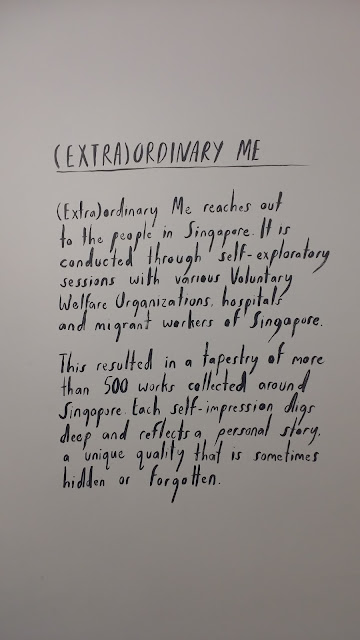 (EXTRA)ORDINARY ME
(Extra)ordinary Me reaches out
to the people in Singapore. It is
conducted through self-exploratory
sessions with various Voluntary
Welfare Organizations, hospitals
and migrant workers of Singapore.
This resulted in a tapestry of more
than 500 works collected around
Singapore. Each self-impression digs
deep and reflects a personal story,
a unique quality that is sometimes
hidden or forgotten.